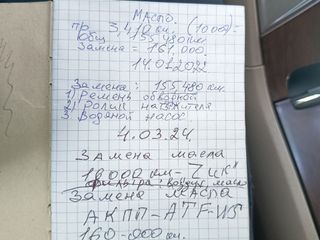 МАСЛО.
пр 3,470 км. (1000)
Общ 155,480 км.
Замена = 161,000.
14.01.2022
Замена: 155,480 км.
1) Ремень обводной
2) Ролик натяжителя
3) Водяной насос
4.03.24.
Замена масла
18000 км - Zик
фильтра: воздух. масл
Замена масла
АКПП - ATF-WS
160-000 км.